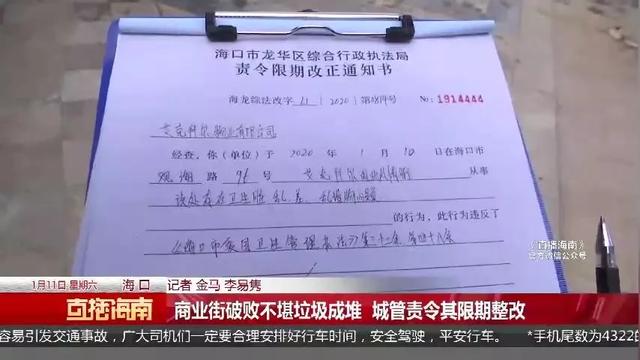 海口市龙华区综合行政执法局
责令限期改正通知书
海龙综法改字 2020 第 号 No: 1914444
物业有限公司
经查,你(单位)于 2020 年 1 月 10 日在海口市
观澜路 96 号 从事
该处存在卫生脏乱差、乱堆
的行为,此行为违反了
《海口市 卫生管理办法》第二十二条 第四十八条
《直播海南》
官方微信公众号
1月11日 星期六 海口 记者 金马 李易隽
直播海南 商业街破败不堪垃圾成堆 城管责令其限期整改
容易引发交通事故,广大司机们一定要合理安排好行车时间,安全驾驶,平安行车。 *手机尾数为4322